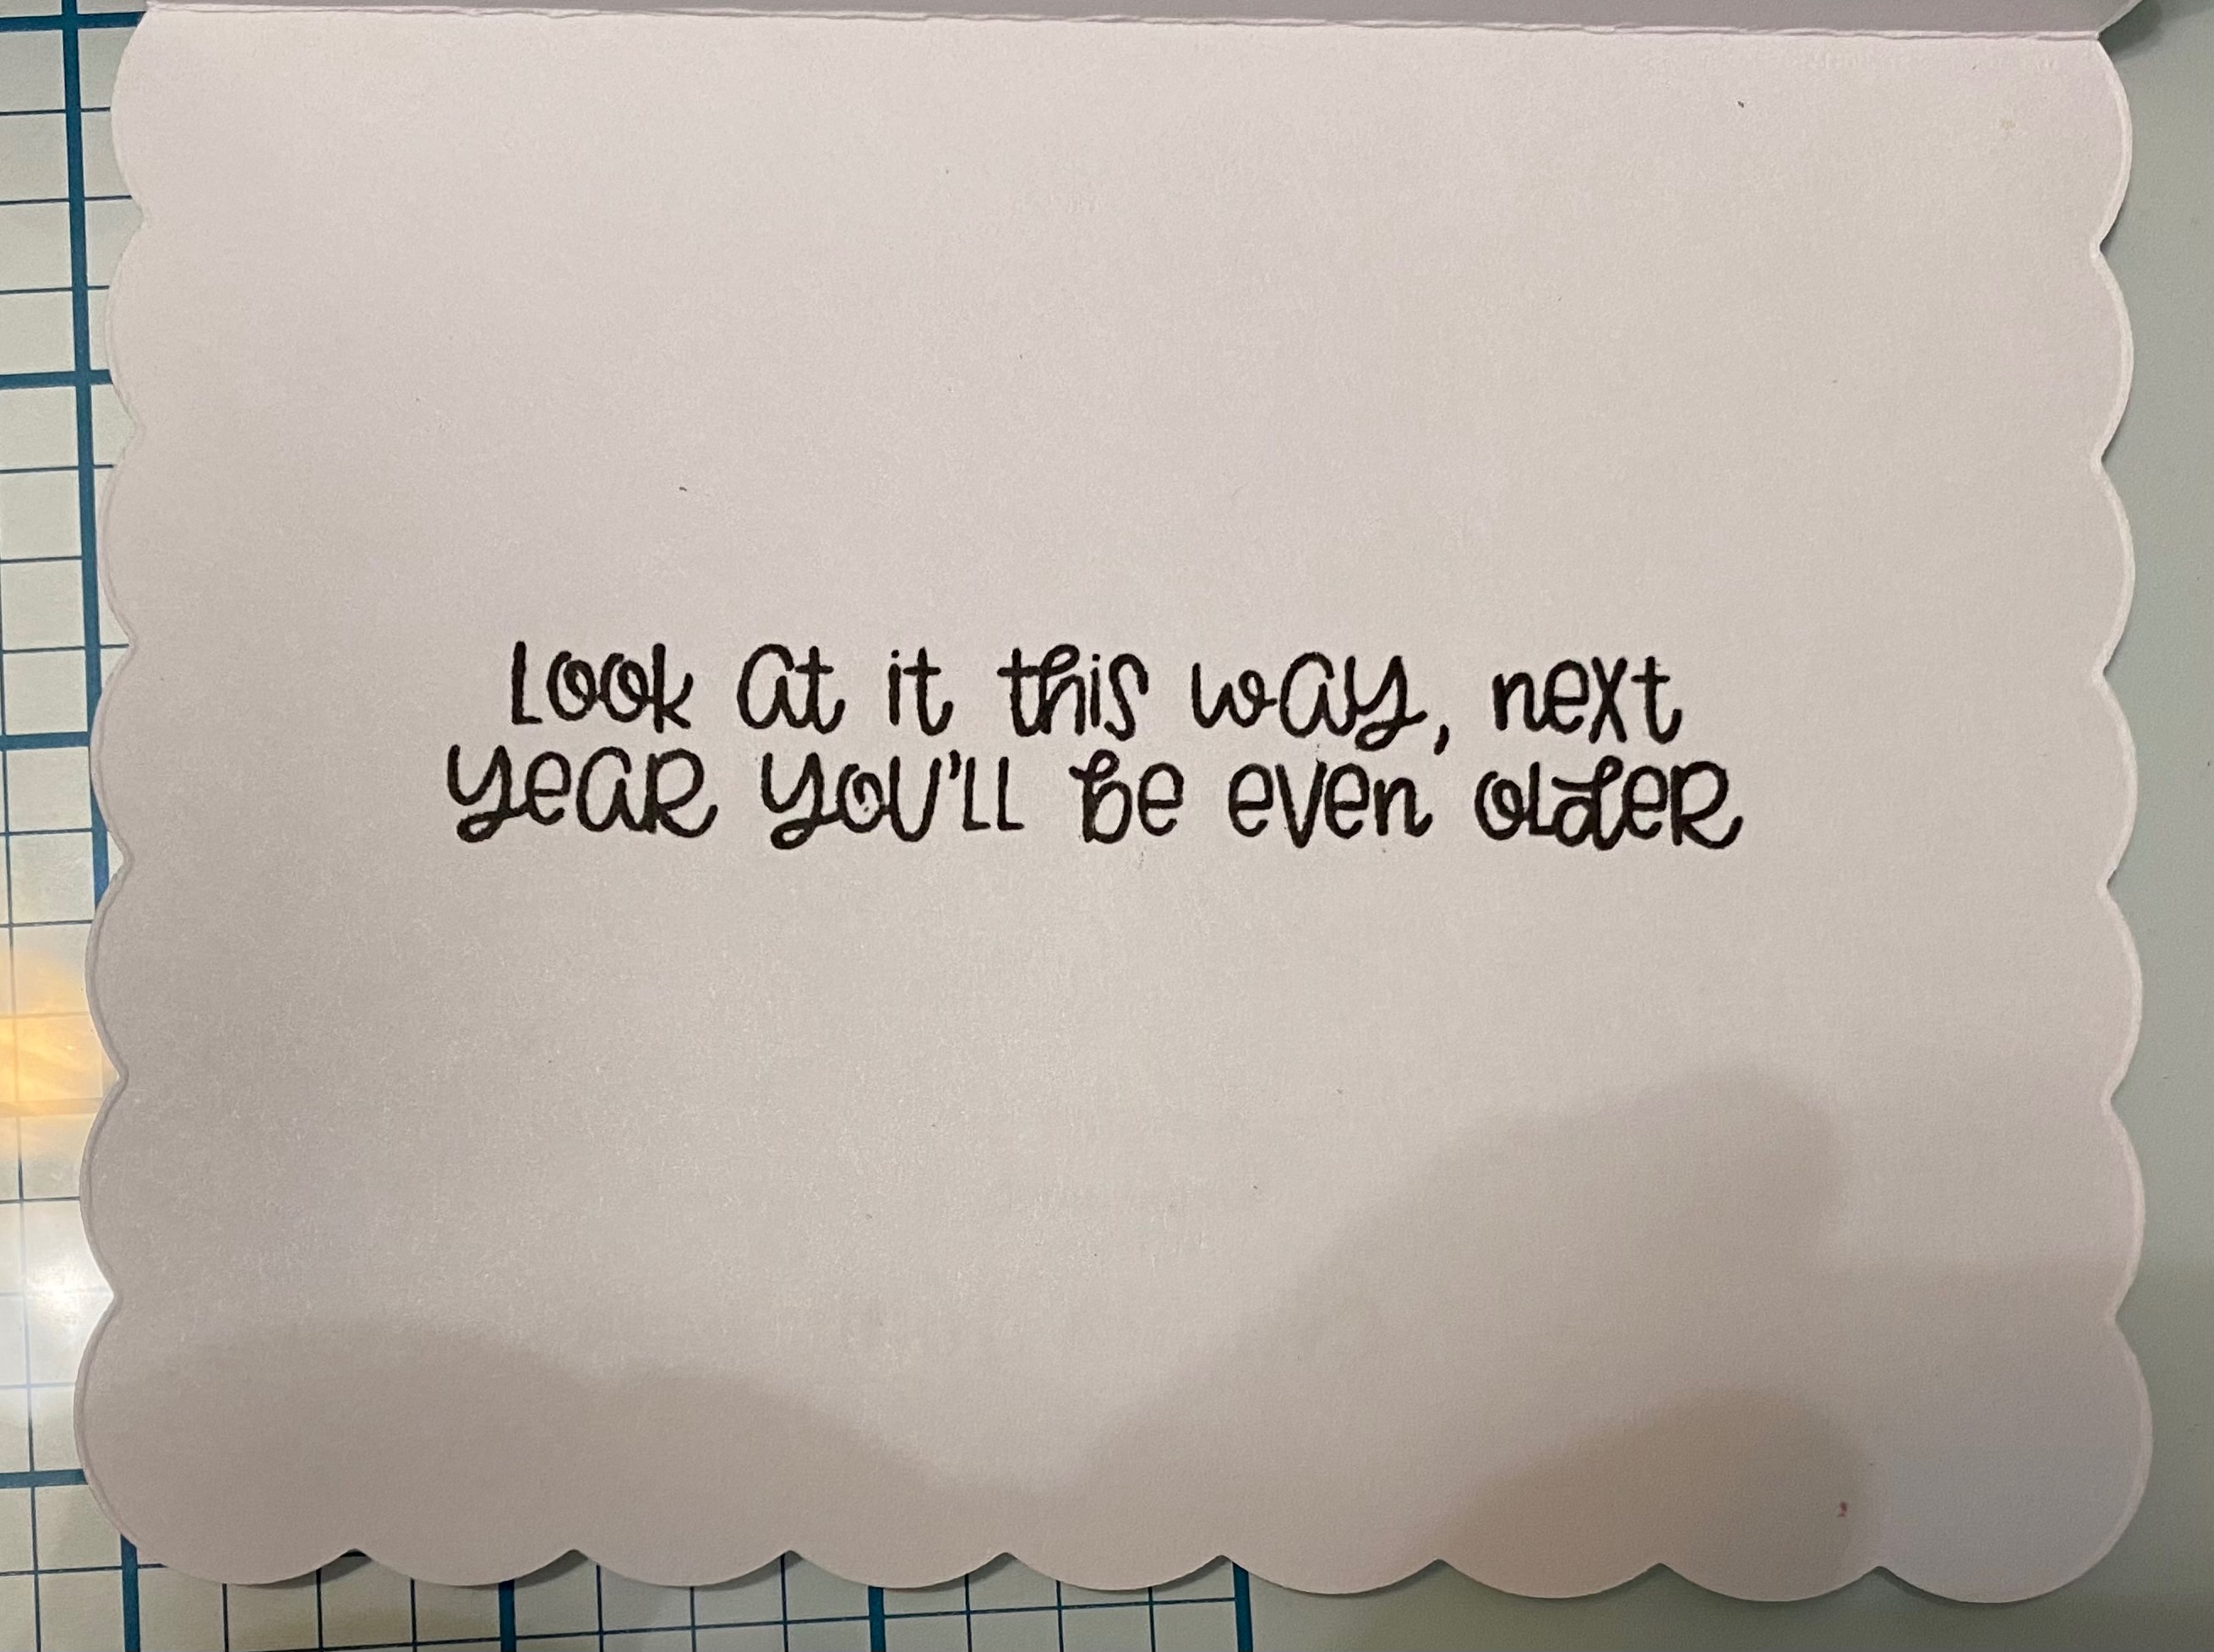 Look at it this way, next
year you'll be even older